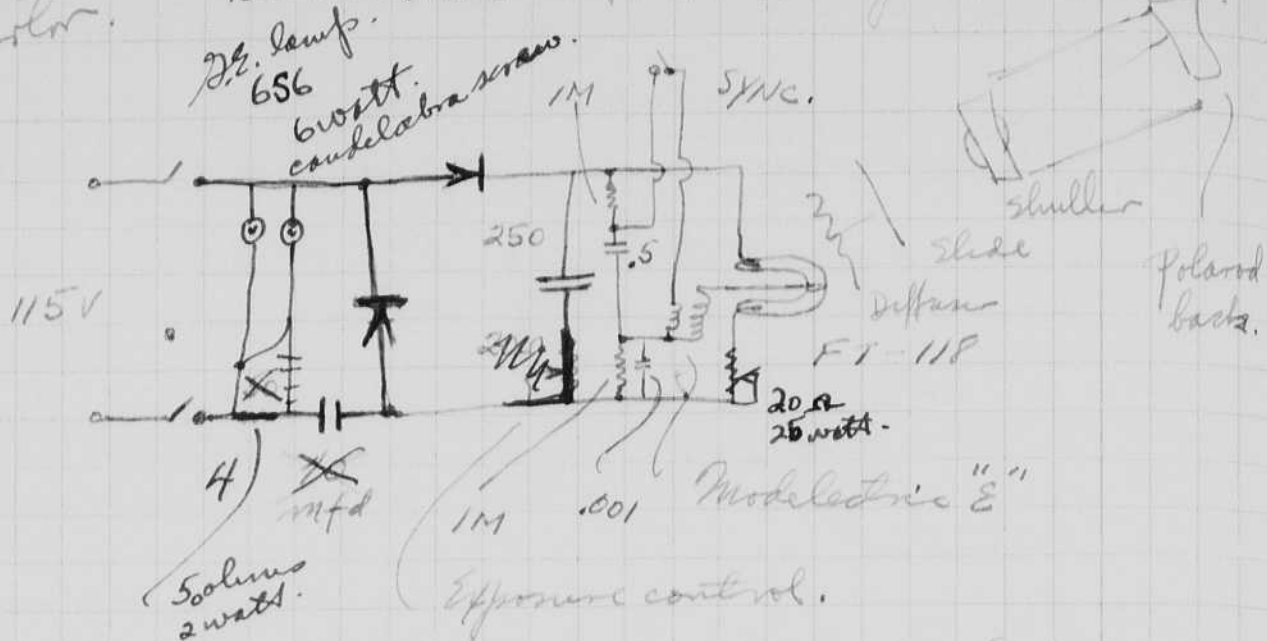 G.E. lamp.
6S6
6 watt.
candelabra screw.
1M
SYNC.
shutter
250
.5
Slide
Polaroid
back.
115 V
Diffuser
FT-118
20 Ω
25 watt.
4
mfd
1M
.001
Modelectric "E"
50 ohms
2 watt.
Exposure control.